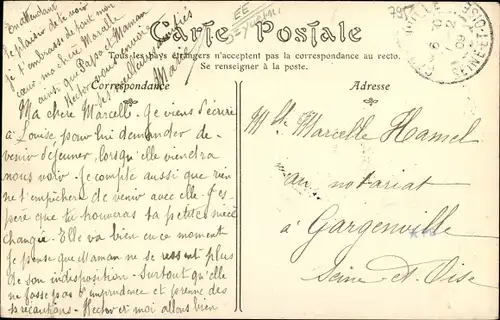 En attendant
le plaisir de te voir
je t'embrasse de tout mon
cœur, ma chère Marcelle
ainsi que Papa et Maman
Hector vous envoie
ses meilleures amitiés
Marie
Carte Postale
Tous les pays étrangers n'acceptent pas la correspondance au recto.
Se renseigner à la poste.
Correspondance
Adresse
Ma chère Marcelle. Je viens d'écrire
à Louise pour lui demander de
venir déjeuner, lorsqu'elle viendra
nous voir. Je compte aussi que rien
ne t'empêchera de venir avec elle. J'es
père que tu trouveras ta petite nièce
changée. Elle va bien en ce moment
Je pense que Maman ne se ressent plus
de son indisposition. Surtout qu'elle
ne fasse pas d'imprudence et prenne des
précautions. Hector et moi allons bien
Mlle Marcelle Hamel
au notariat
à Gargenville
Seine et Oise
GARGENVILLE
09
SEINE-ET-OISE